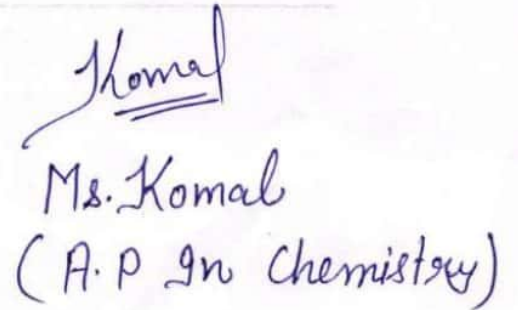 Komal
Ms. Komal
(A.P In Chemistry)